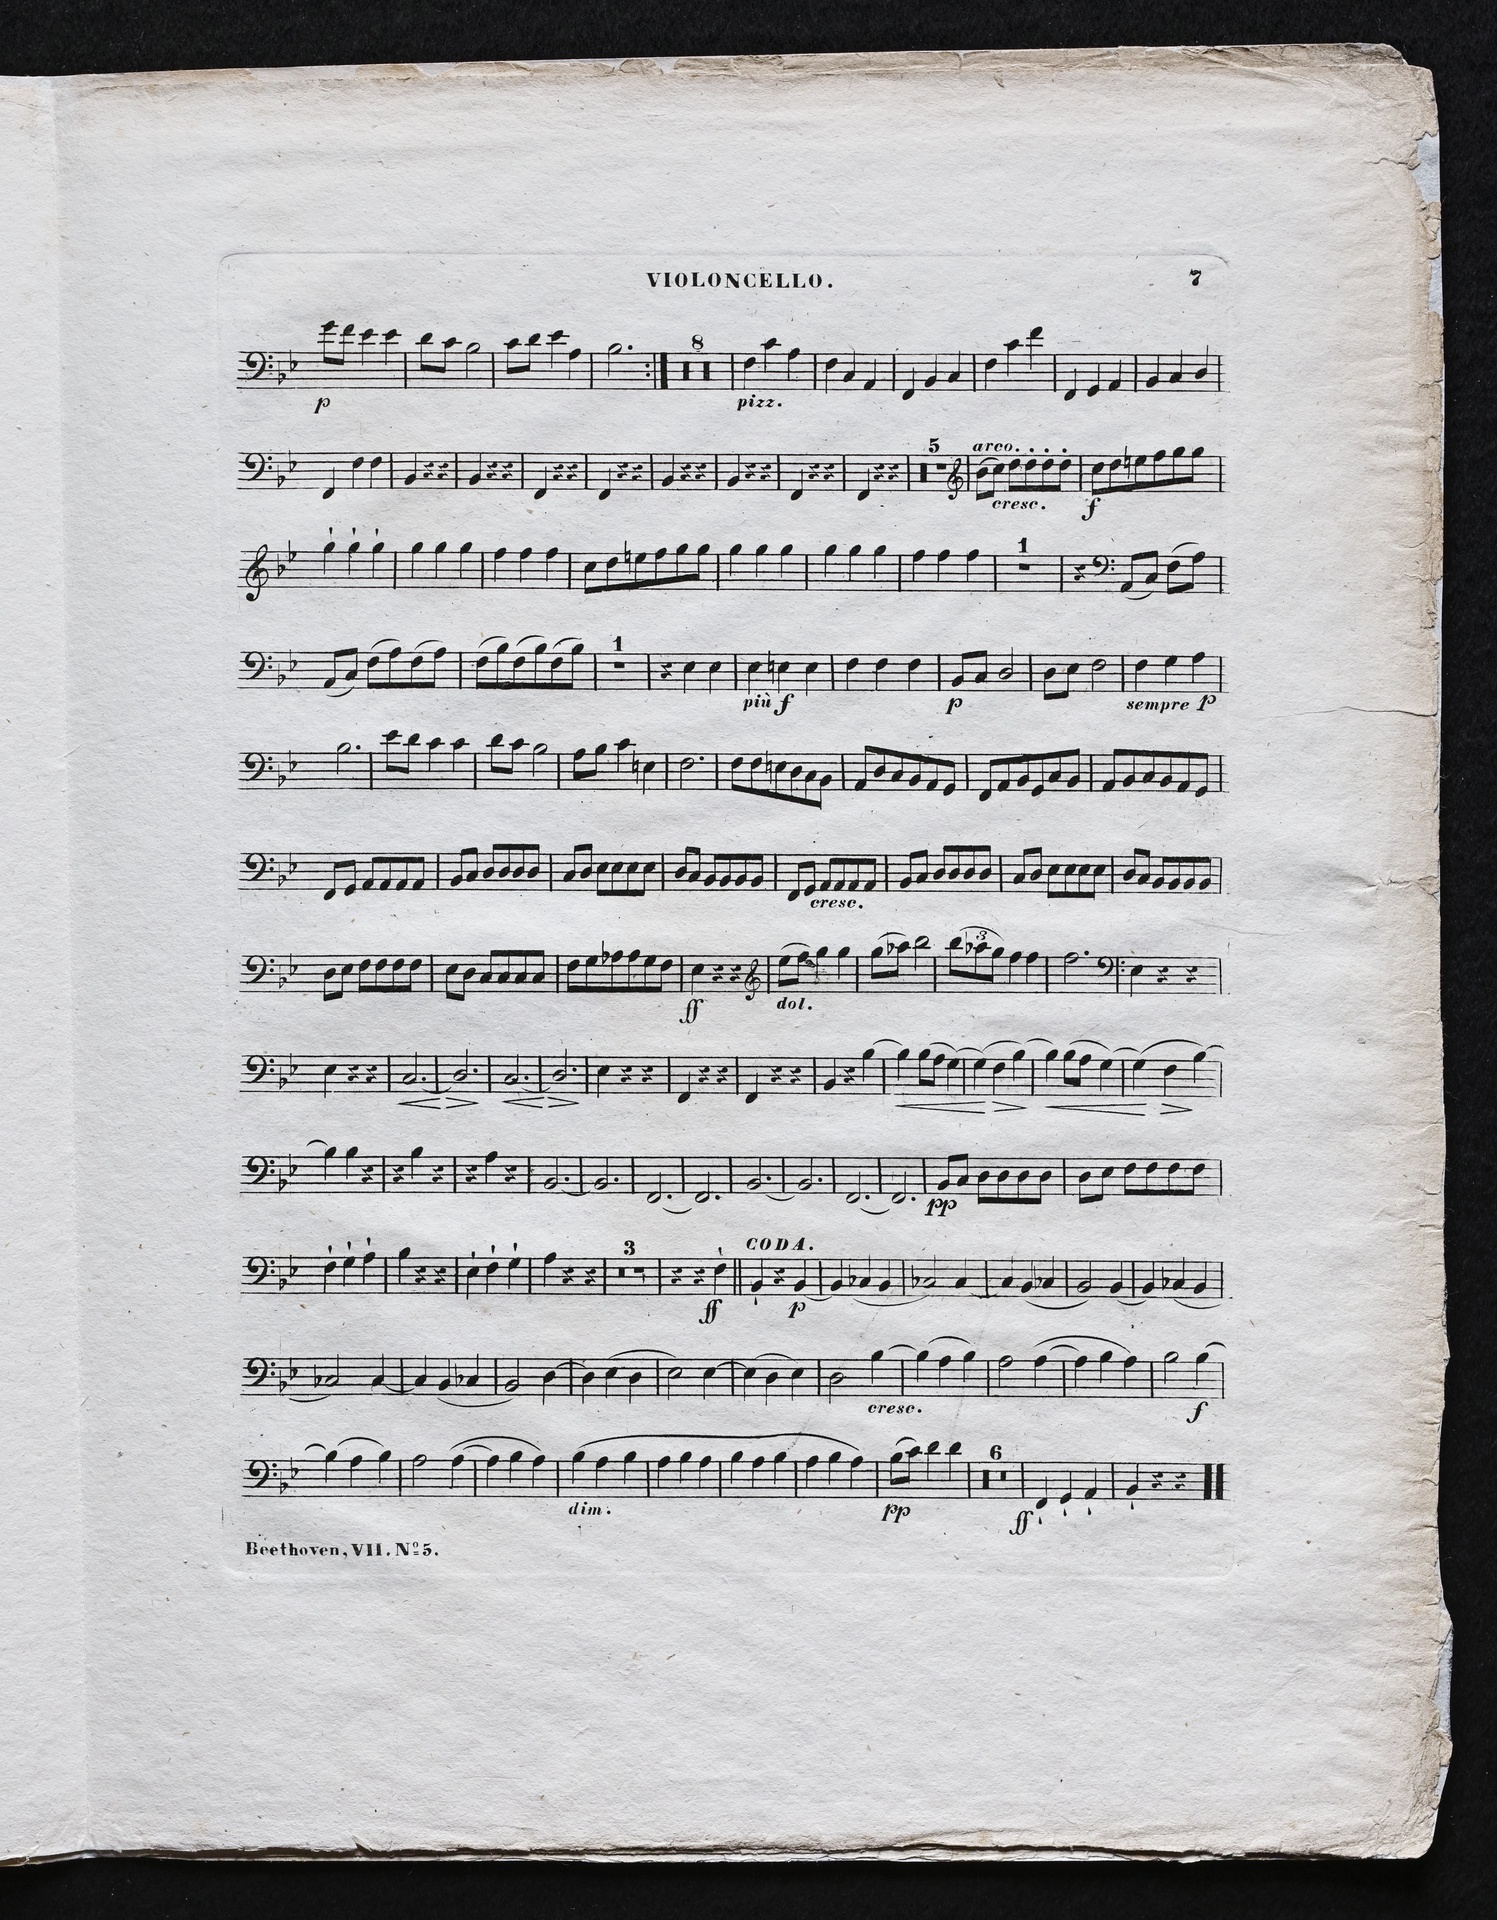 VIOLONCELLO. 7
8
p pizz.
5 arco.
cresc. f
1
1
più f p sempre p
cresc.
3
ff dol.
pp
3 CODA.
ff p
cresc. f
6
dim. pp ff
Beethoven, VII. Nº 5.